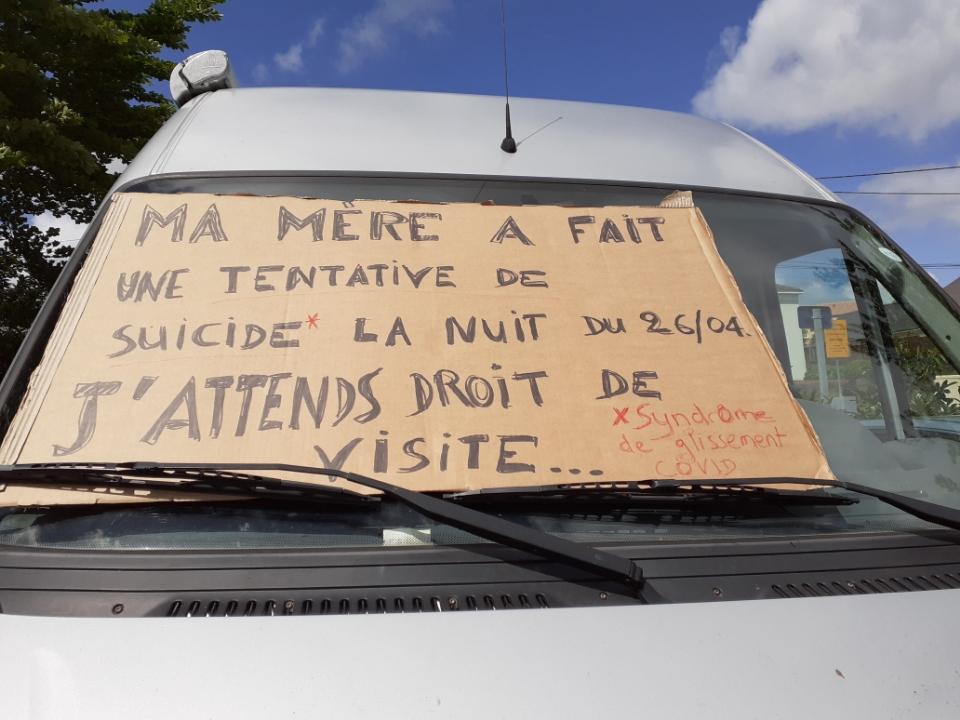 MA MÈRE A FAIT
UNE TENTATIVE DE
SUICIDE* LA NUIT DU 26/04.
J'ATTENDS DROIT DE
VISITE...
*Syndrôme
de glissement
COVID